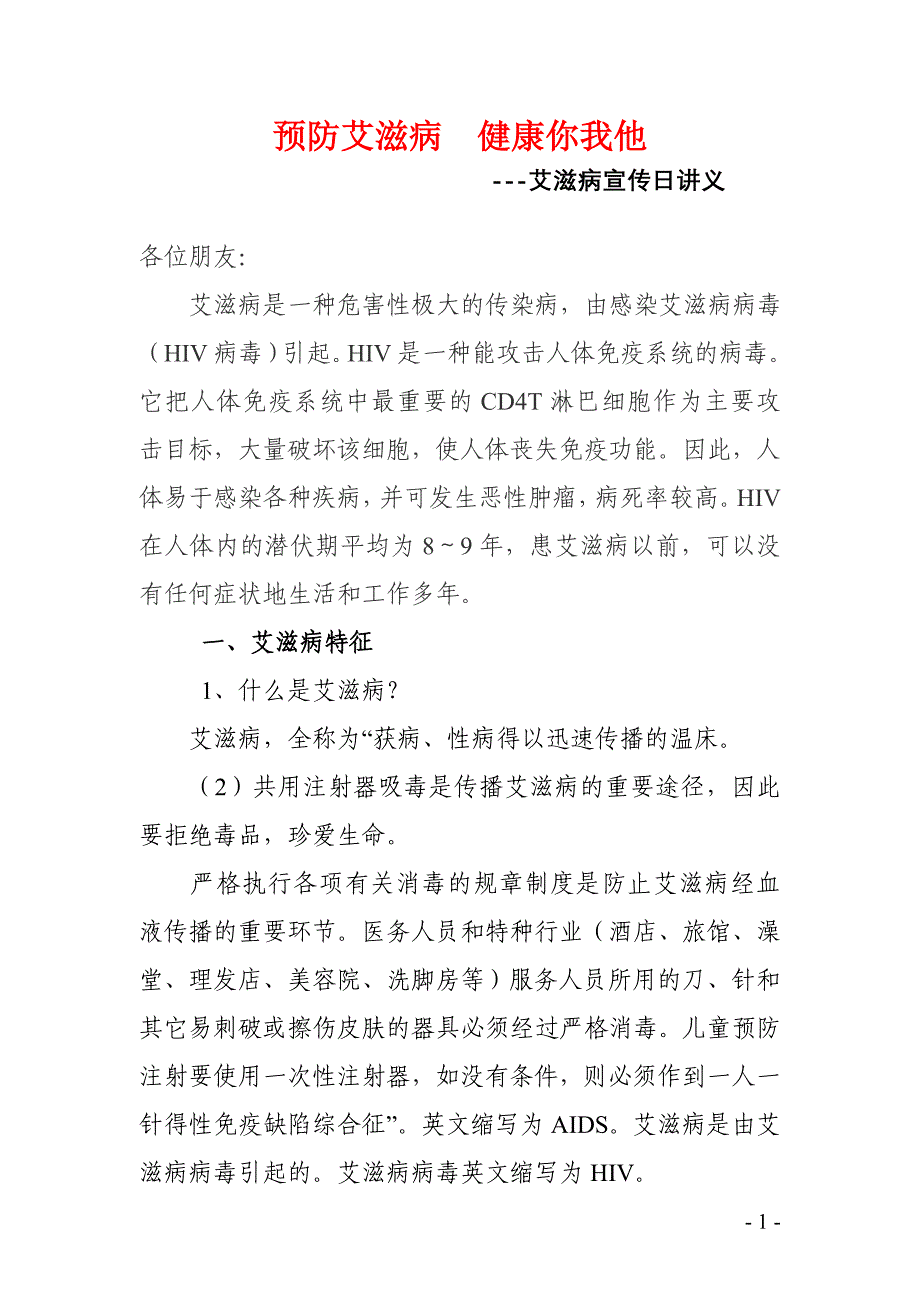 预防艾滋病　健康你我他
---艾滋病宣传日讲义
各位朋友:
艾滋病是一种危害性极大的传染病，由感染艾滋病病毒
（HIV 病毒）引起。HIV 是一种能攻击人体免疫系统的病毒。
它把人体免疫系统中最重要的 CD4T 淋巴细胞作为主要攻
击目标，大量破坏该细胞，使人体丧失免疫功能。因此，人
体易于感染各种疾病，并可发生恶性肿瘤，病死率较高。HIV
在人体内的潜伏期平均为 8～9 年，患艾滋病以前，可以没
有任何症状地生活和工作多年。
一、艾滋病特征
1、什么是艾滋病？
艾滋病，全称为“获病、性病得以迅速传播的温床。
（2）共用注射器吸毒是传播艾滋病的重要途径，因此
要拒绝毒品，珍爱生命。
严格执行各项有关消毒的规章制度是防止艾滋病经血
液传播的重要环节。医务人员和特种行业（酒店、旅馆、澡
堂、理发店、美容院、洗脚房等）服务人员所用的刀、针和
其它易刺破或擦伤皮肤的器具必须经过严格消毒。儿童预防
注射要使用一次性注射器，如没有条件，则必须作到一人一
针得性免疫缺陷综合征”。英文缩写为 AIDS。艾滋病是由艾
滋病病毒引起的。艾滋病病毒英文缩写为 HIV。
- 1 -